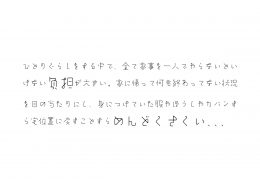 ひとりぐらしをする中で、全て家事を一人でやらないとい
けない負担が大きい。家に帰って何も終わってない状況
を目の当たりにし、身につけていた服やぼうしやカバンす
ら定位置に戻すことすらめんどくさい...